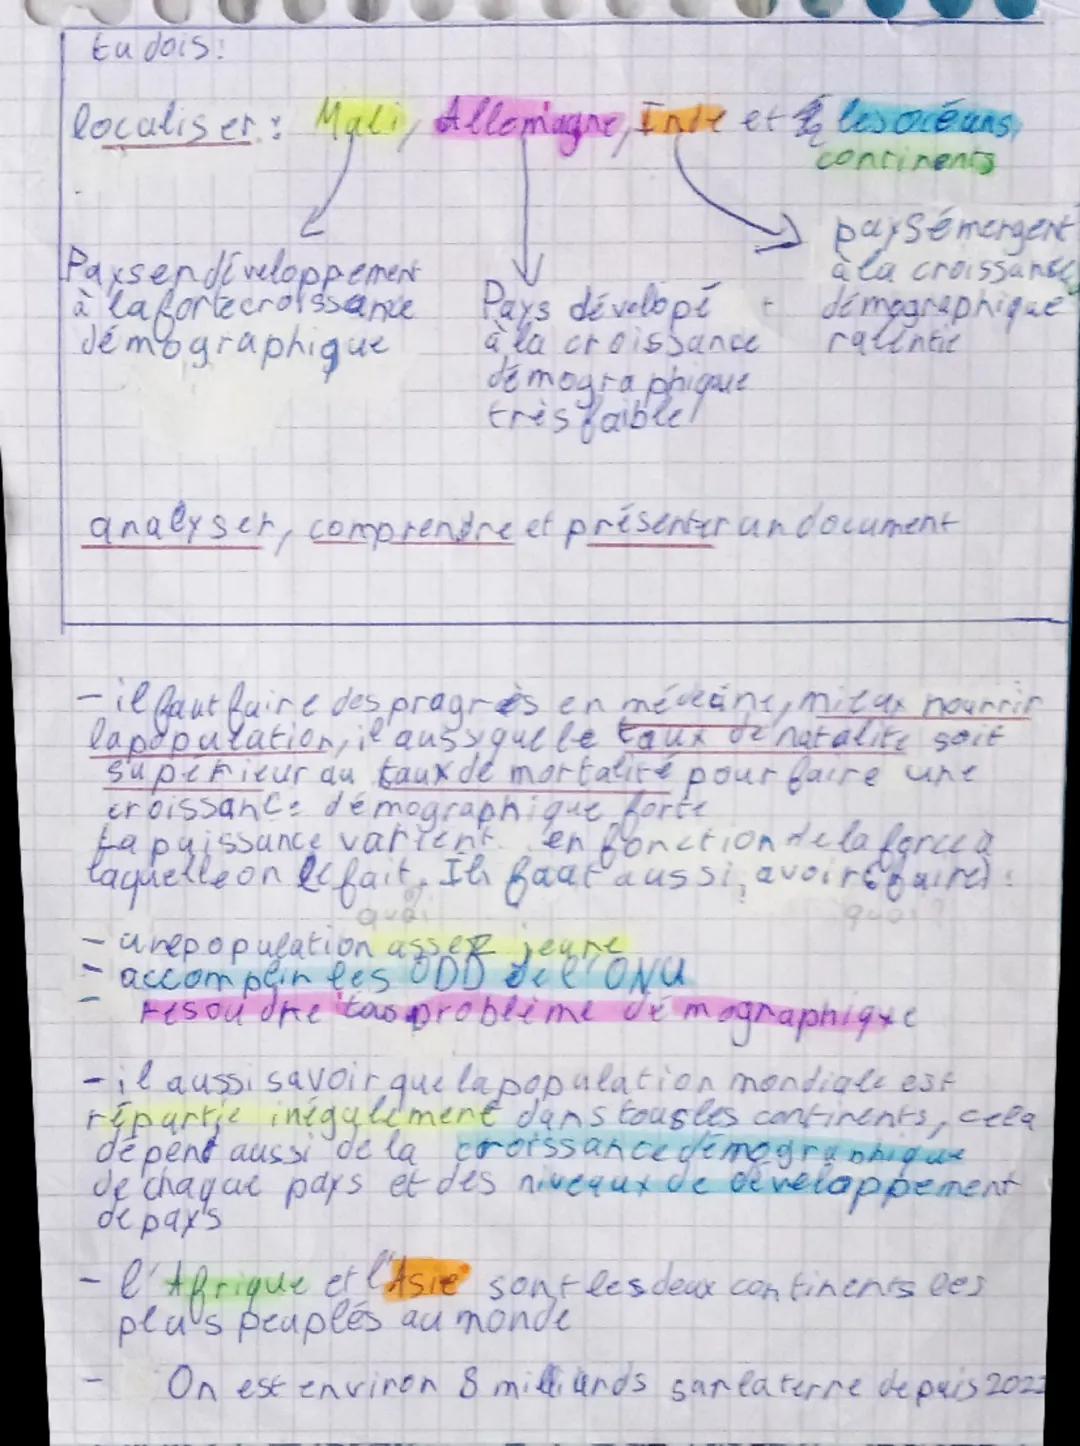 tu dois:
localiser: Mali, Allemagne, Inde et les océans,
continents
Paysendéveloppement
à la forte croissance
démographique
Pays dévelopé
à la croissance
démographique
très faible
pays émergent
à la croissance
démographique
ralentie
analyser, comprendre et présenter un document
- il faut faire des pragrès en médecine, mieux nourrir
la population, il aussy que le taux de natalité soit
supérieur au taux de mortalité pour faire une
croissance démographique forte
La puissance varient en fonction de la force à
laquelle on le fait. Il faut aussi, avoir (faire):
quoi
quoi?
- une population assez jeune
- accomplin les ODD de l'ONU
- resoudre problème démographique
- il aussi savoir que la population mondiale est
répartie inégalement dans tous les continents, cela
dépend aussi de la croissance démographique
de chaque pays et des niveaux de développement
de pays
- l'Afrique et l'Asie sont les deux continents les
plus peuplés au monde
- On est environ 8 milliards sur la terre depuis 2022